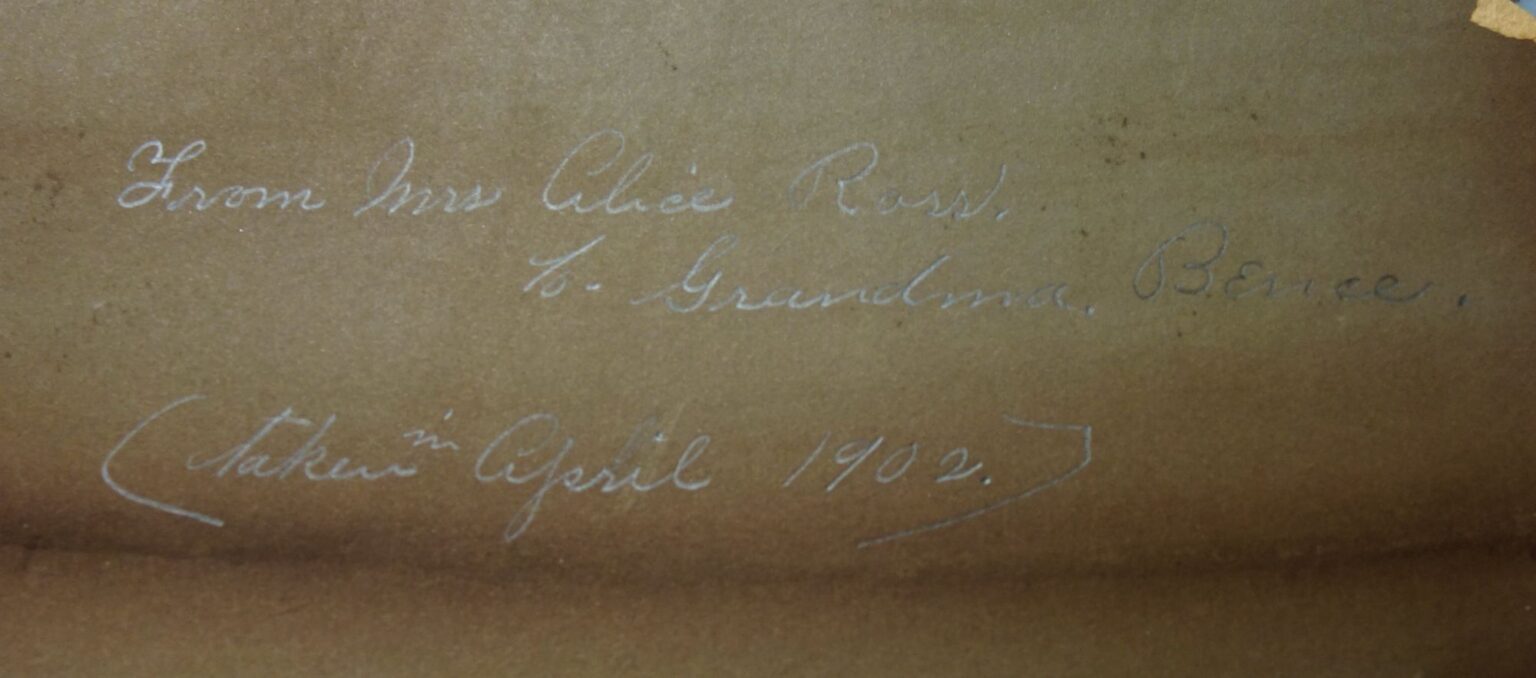 From Mrs Alice Ross.
to. Grandma. Bence.
(taken in April 1902.)